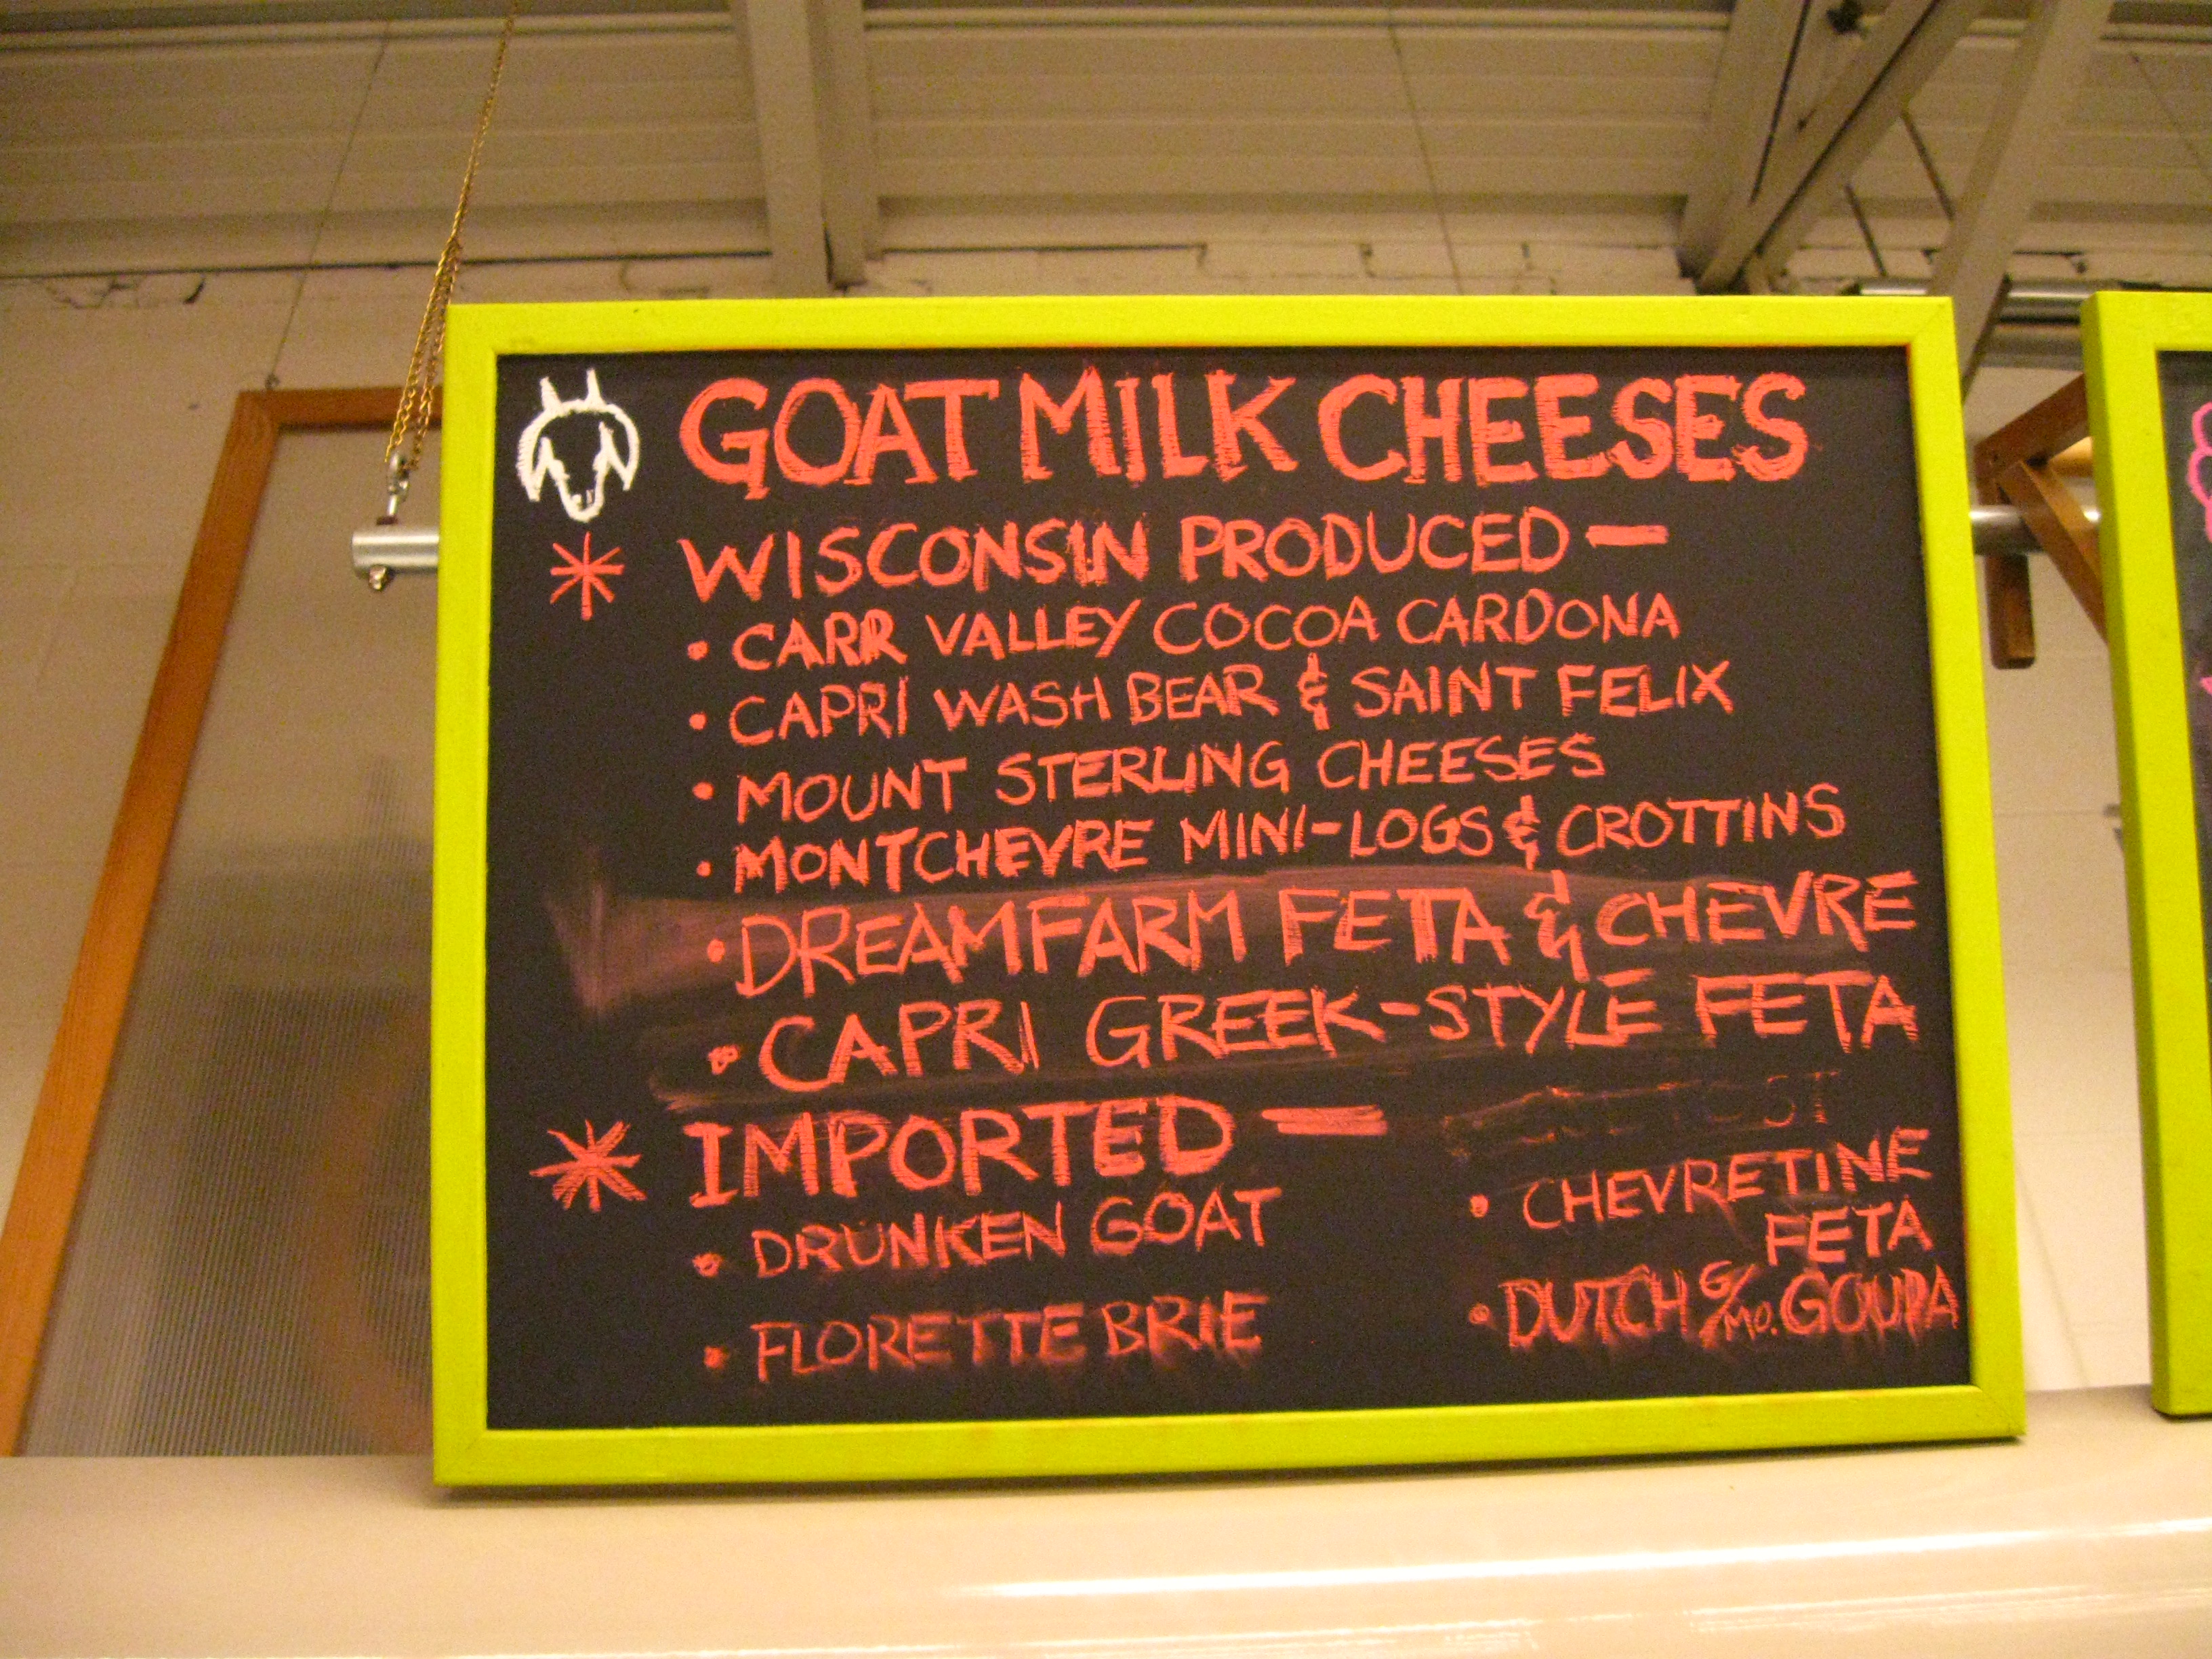 GOAT MILK CHEESES
* WISCONSIN PRODUCED —
• CARR VALLEY COCOA CARDONA
• CAPRI WASH BEAR & SAINT FELIX
• MOUNT STERLING CHEESES
• MONTCHEVRE MINI-LOGS & CROTTINS
• DREAMFARM FETA & CHEVRE
• CAPRI GREEK-STYLE FETA
* IMPORTED —
• DRUNKEN GOAT
• FLORETTE BRIE
• CHEVRETINE
FETA
• DUTCH 6/MO. GOUDA